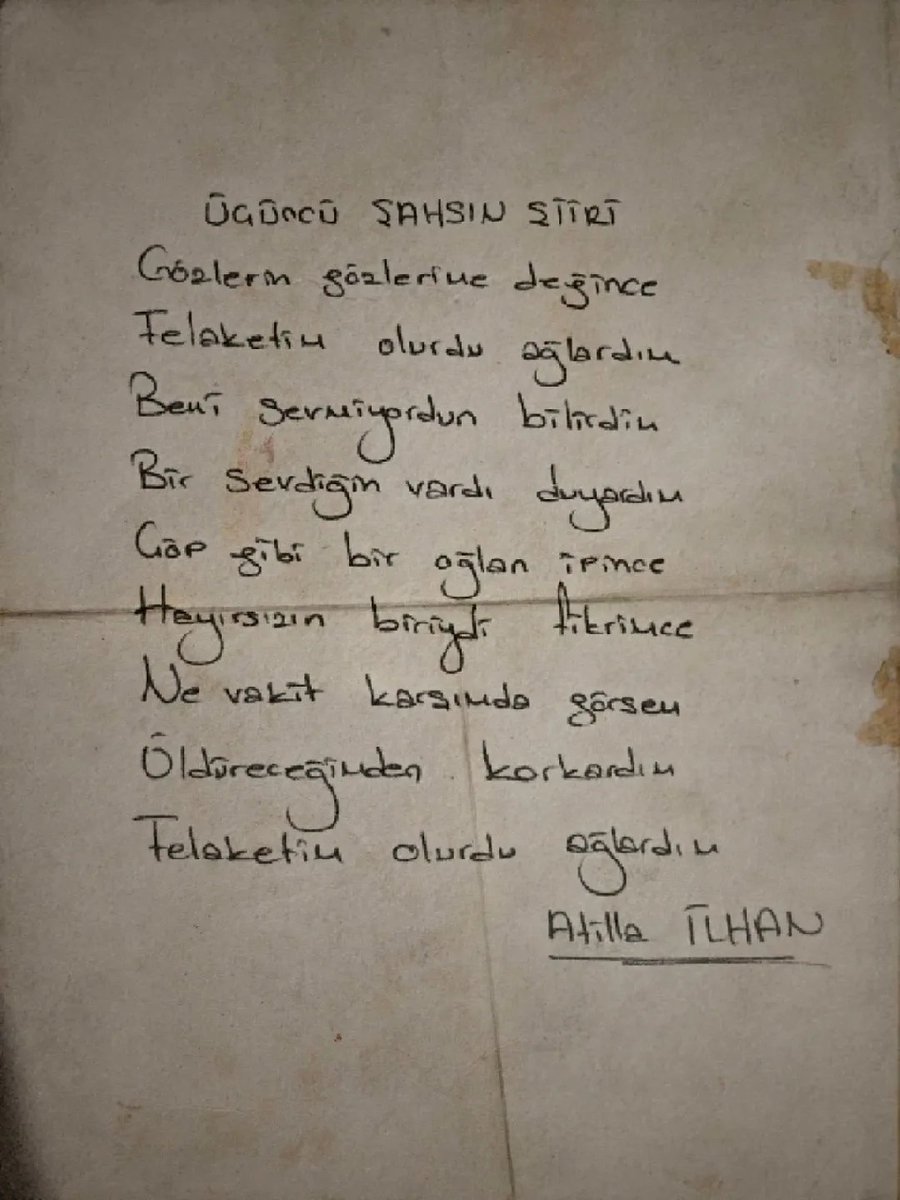 ÜÇÜNCÜ ŞAHSIN ŞİİRİ
Gözlerin gözlerime değince
Felaketim olurdu ağlardım
Beni sevmiyordun bilirdim
Bir sevdiğin vardı duyardım
Çöp gibi bir oğlan ipince
Hayırsızın biriydi fikrimce
Ne vakit karşımda görsem
Öldüreceğimden korkardım
Felaketim olurdu ağlardım
Atilla İLHAN